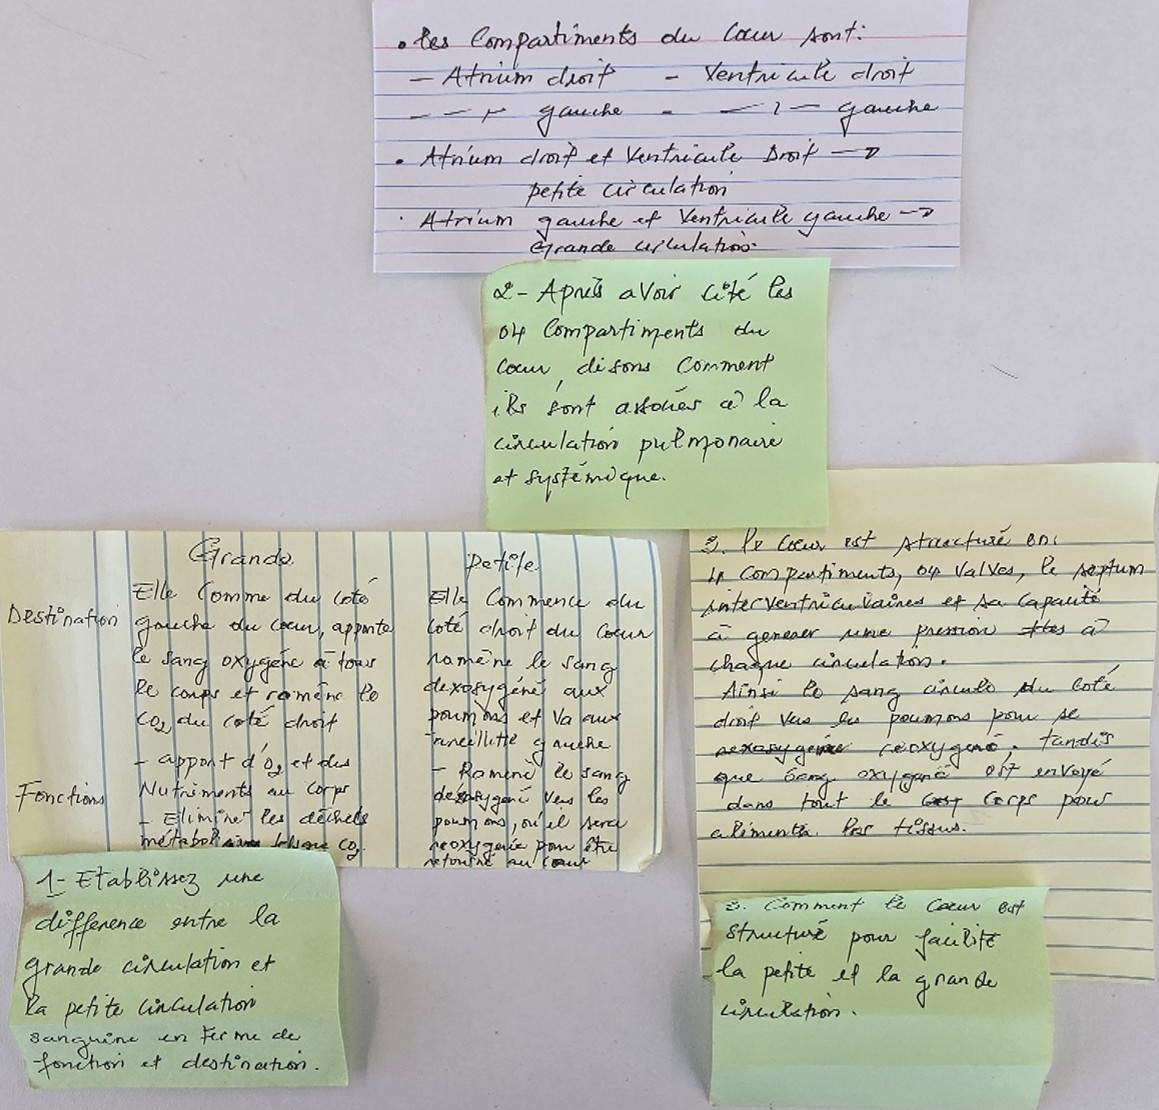 • Les Compartiments du Cœur sont:
- Atrium droit - Ventricule droit
- - gauche - - gauche
• Atrium droit et Ventricule Droit →
petite circulation
• Atrium gauche et Ventricule gauche →
Grande circulation.
2- Après avoir cité les
04 Compartiments du
Cœur disons Comment
ils sont assoiés à la
circulation pulmonaire
et systémique.
Grande Petite
Destination
Elle Comme du coté
gauche du cœur, apporte
le sang oxygéné à tous
le corps et ramène le
CO₂ du coté droit
Fonctions
- apport d'O₂ et des
Nutriments au Corps
- Eliminer les déchets
CO₂.
Elle Commence du
coté droit du Cœur
ramène le sang
dexosygéné aux
poumons et va aux
gauche
- Ramené le sang
vers les
poumons, où il sera
reoxygéné pour être
retourné au cœur
1- Etablissez une
différence entre la
grande circulation et
la petite circulation
sanguine en terme de
fonction et destination.
3. Le cœur est structuré en:
4 Compartiments, 04 Valves, le septum
et sa capacité
à generer une pression à
chaque circulation.
Ainsi le sang circule du coté
droit vers les poumons pour se
réoxygené. tandis
que sang oxygéné est envoyé
dans tout le Corps pour
alimenter les tissus.
3. Comment le Cœur est
structuré pour facilité
la petite et la grande
circulation.